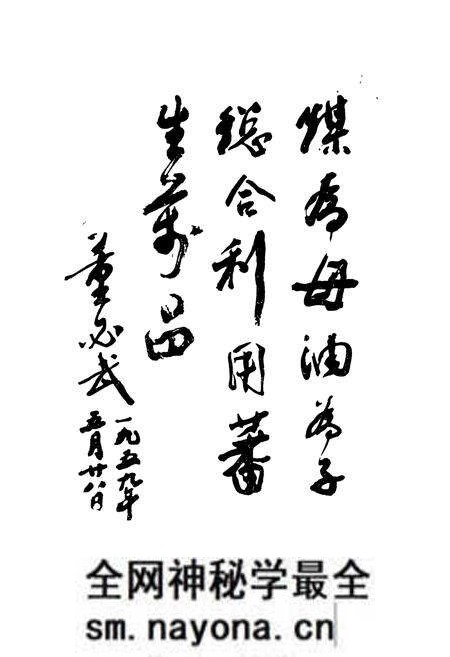 煤為母油為子
綜合利用蕃
生萬品
董必武
一九五九年
五月廿八日
全网神秘学最全
sm.nayona.cn